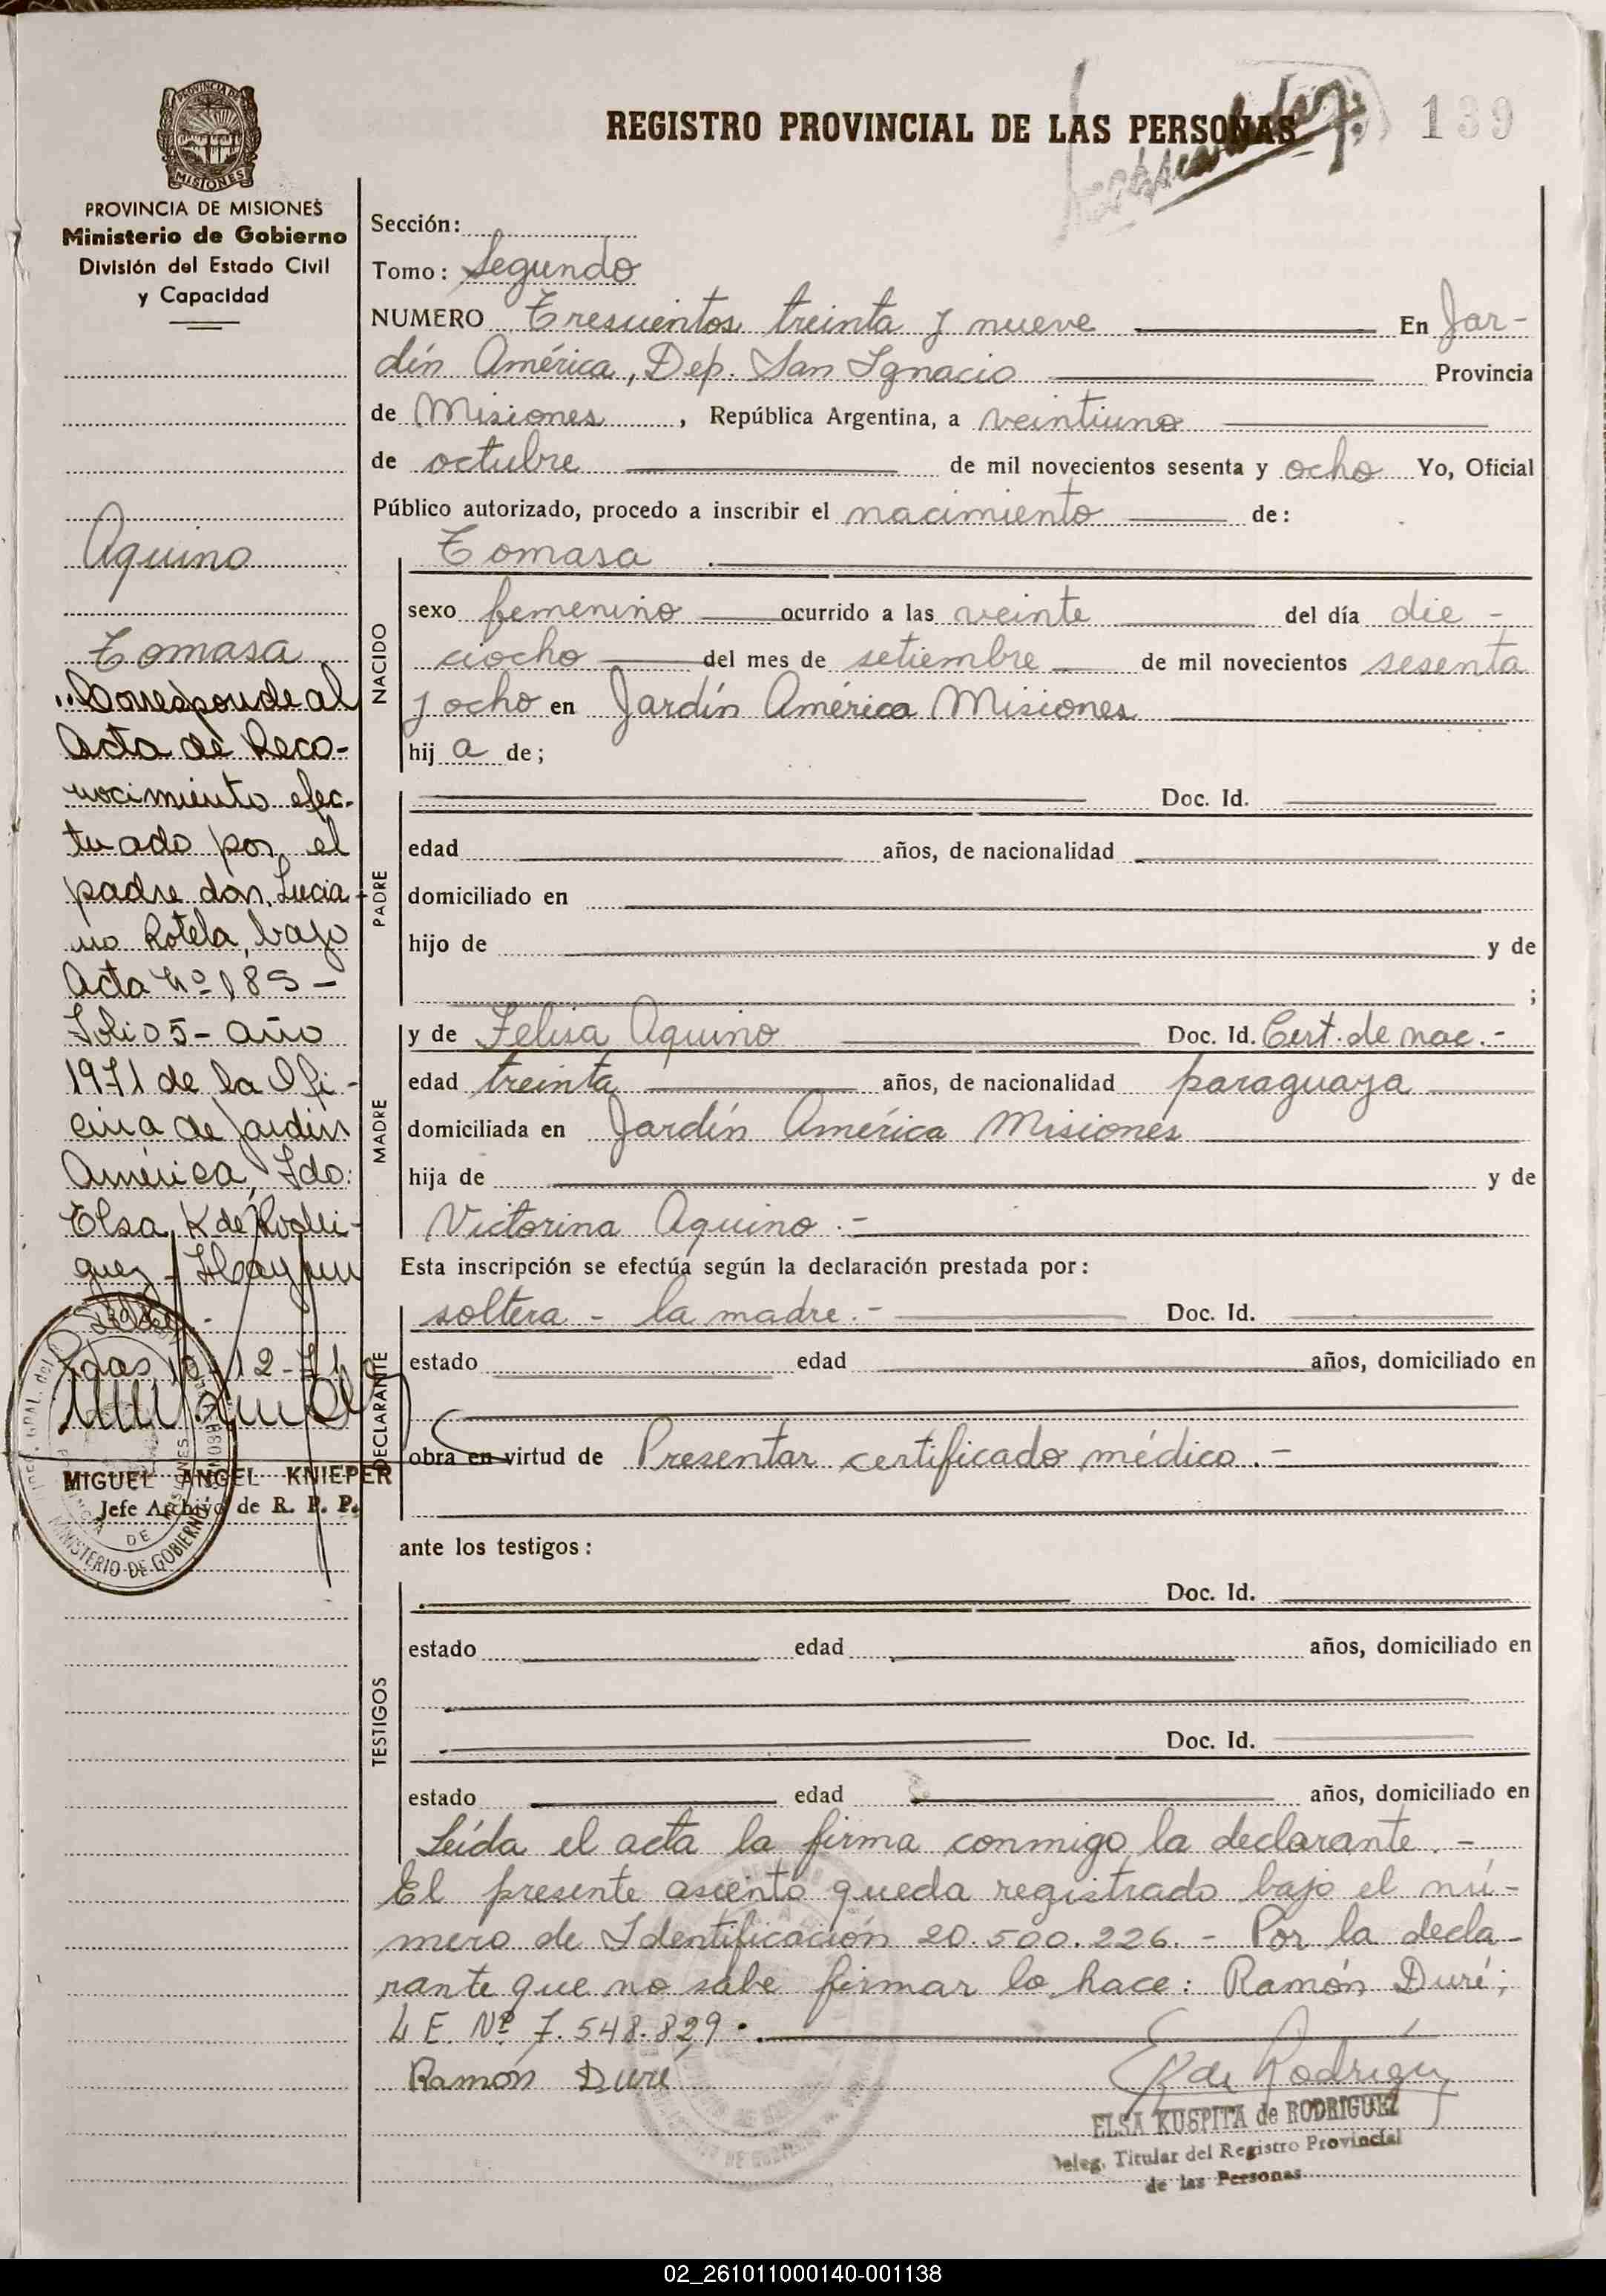 REGISTRO PROVINCIAL DE LAS PERSONAS
139
PROVINCIA DE MISIONES
Ministerio de Gobierno
División del Estado Civil
y Capacidad
Aquino
Tomasa
"Corresponde al
Acta de Reco-
nocimiento efec-
tuado por el
padre don Lucia
no Rotela, bajo
Acta Nº 185 -
Folio 5 - año
1971 de la Ofi-
cina de Jardín
América, Fdo:
Elsa K de Rodri-
guez - Hay un
sello".-
Pdas 10-12-71
MIGUEL ANGEL KNIEPER
Jefe Archivo de R. P. P.
MINISTERIO DE GOBIERNO
Sección:
Tomo: Segundo
NUMERO Trescientos treinta y nueve En Jar-
dín América, Dep. San Ignacio Provincia
de Misiones, República Argentina, a veintiuno
de octubre de mil novecientos sesenta y ocho Yo, Oficial
Público autorizado, procedo a inscribir el nacimiento de:
Tomasa
NACIDO
sexo femenino ocurrido a las veinte del día die-
ciocho del mes de setiembre de mil novecientos sesenta
y ocho en Jardín América Misiones
hij a de;
PADRE
Doc. Id.
edad años, de nacionalidad
domiciliado en
hijo de y de
;
MADRE
y de Felisa Aquino Doc. Id. Cert. de nac.-
edad treinta años, de nacionalidad paraguaya
domiciliada en Jardín América Misiones
hija de y de
Victorina Aquino.-
Esta inscripción se efectúa según la declaración prestada por:
DECLARANTE
soltera - la madre.- Doc. Id.
estado edad años, domiciliado en
obra en virtud de Presentar certificado médico.-
ante los testigos:
TESTIGOS
Doc. Id.
estado edad años, domiciliado en
Doc. Id.
estado edad años, domiciliado en
Leída el acta la firma conmigo la declarante.-
El presente asiento queda registrado bajo el nú-
mero de Identificación 20.500.226.- Por la decla-
rante que no sabe firmar lo hace: Ramón Duré;
L E. Nº 7.548.829.
Ramón Duré
E K de Rodríguez
ELSA KUSPITA de RODRIGUEZ
Deleg. Titular del Registro Provincial
de las Personas
02_261011000140-001138